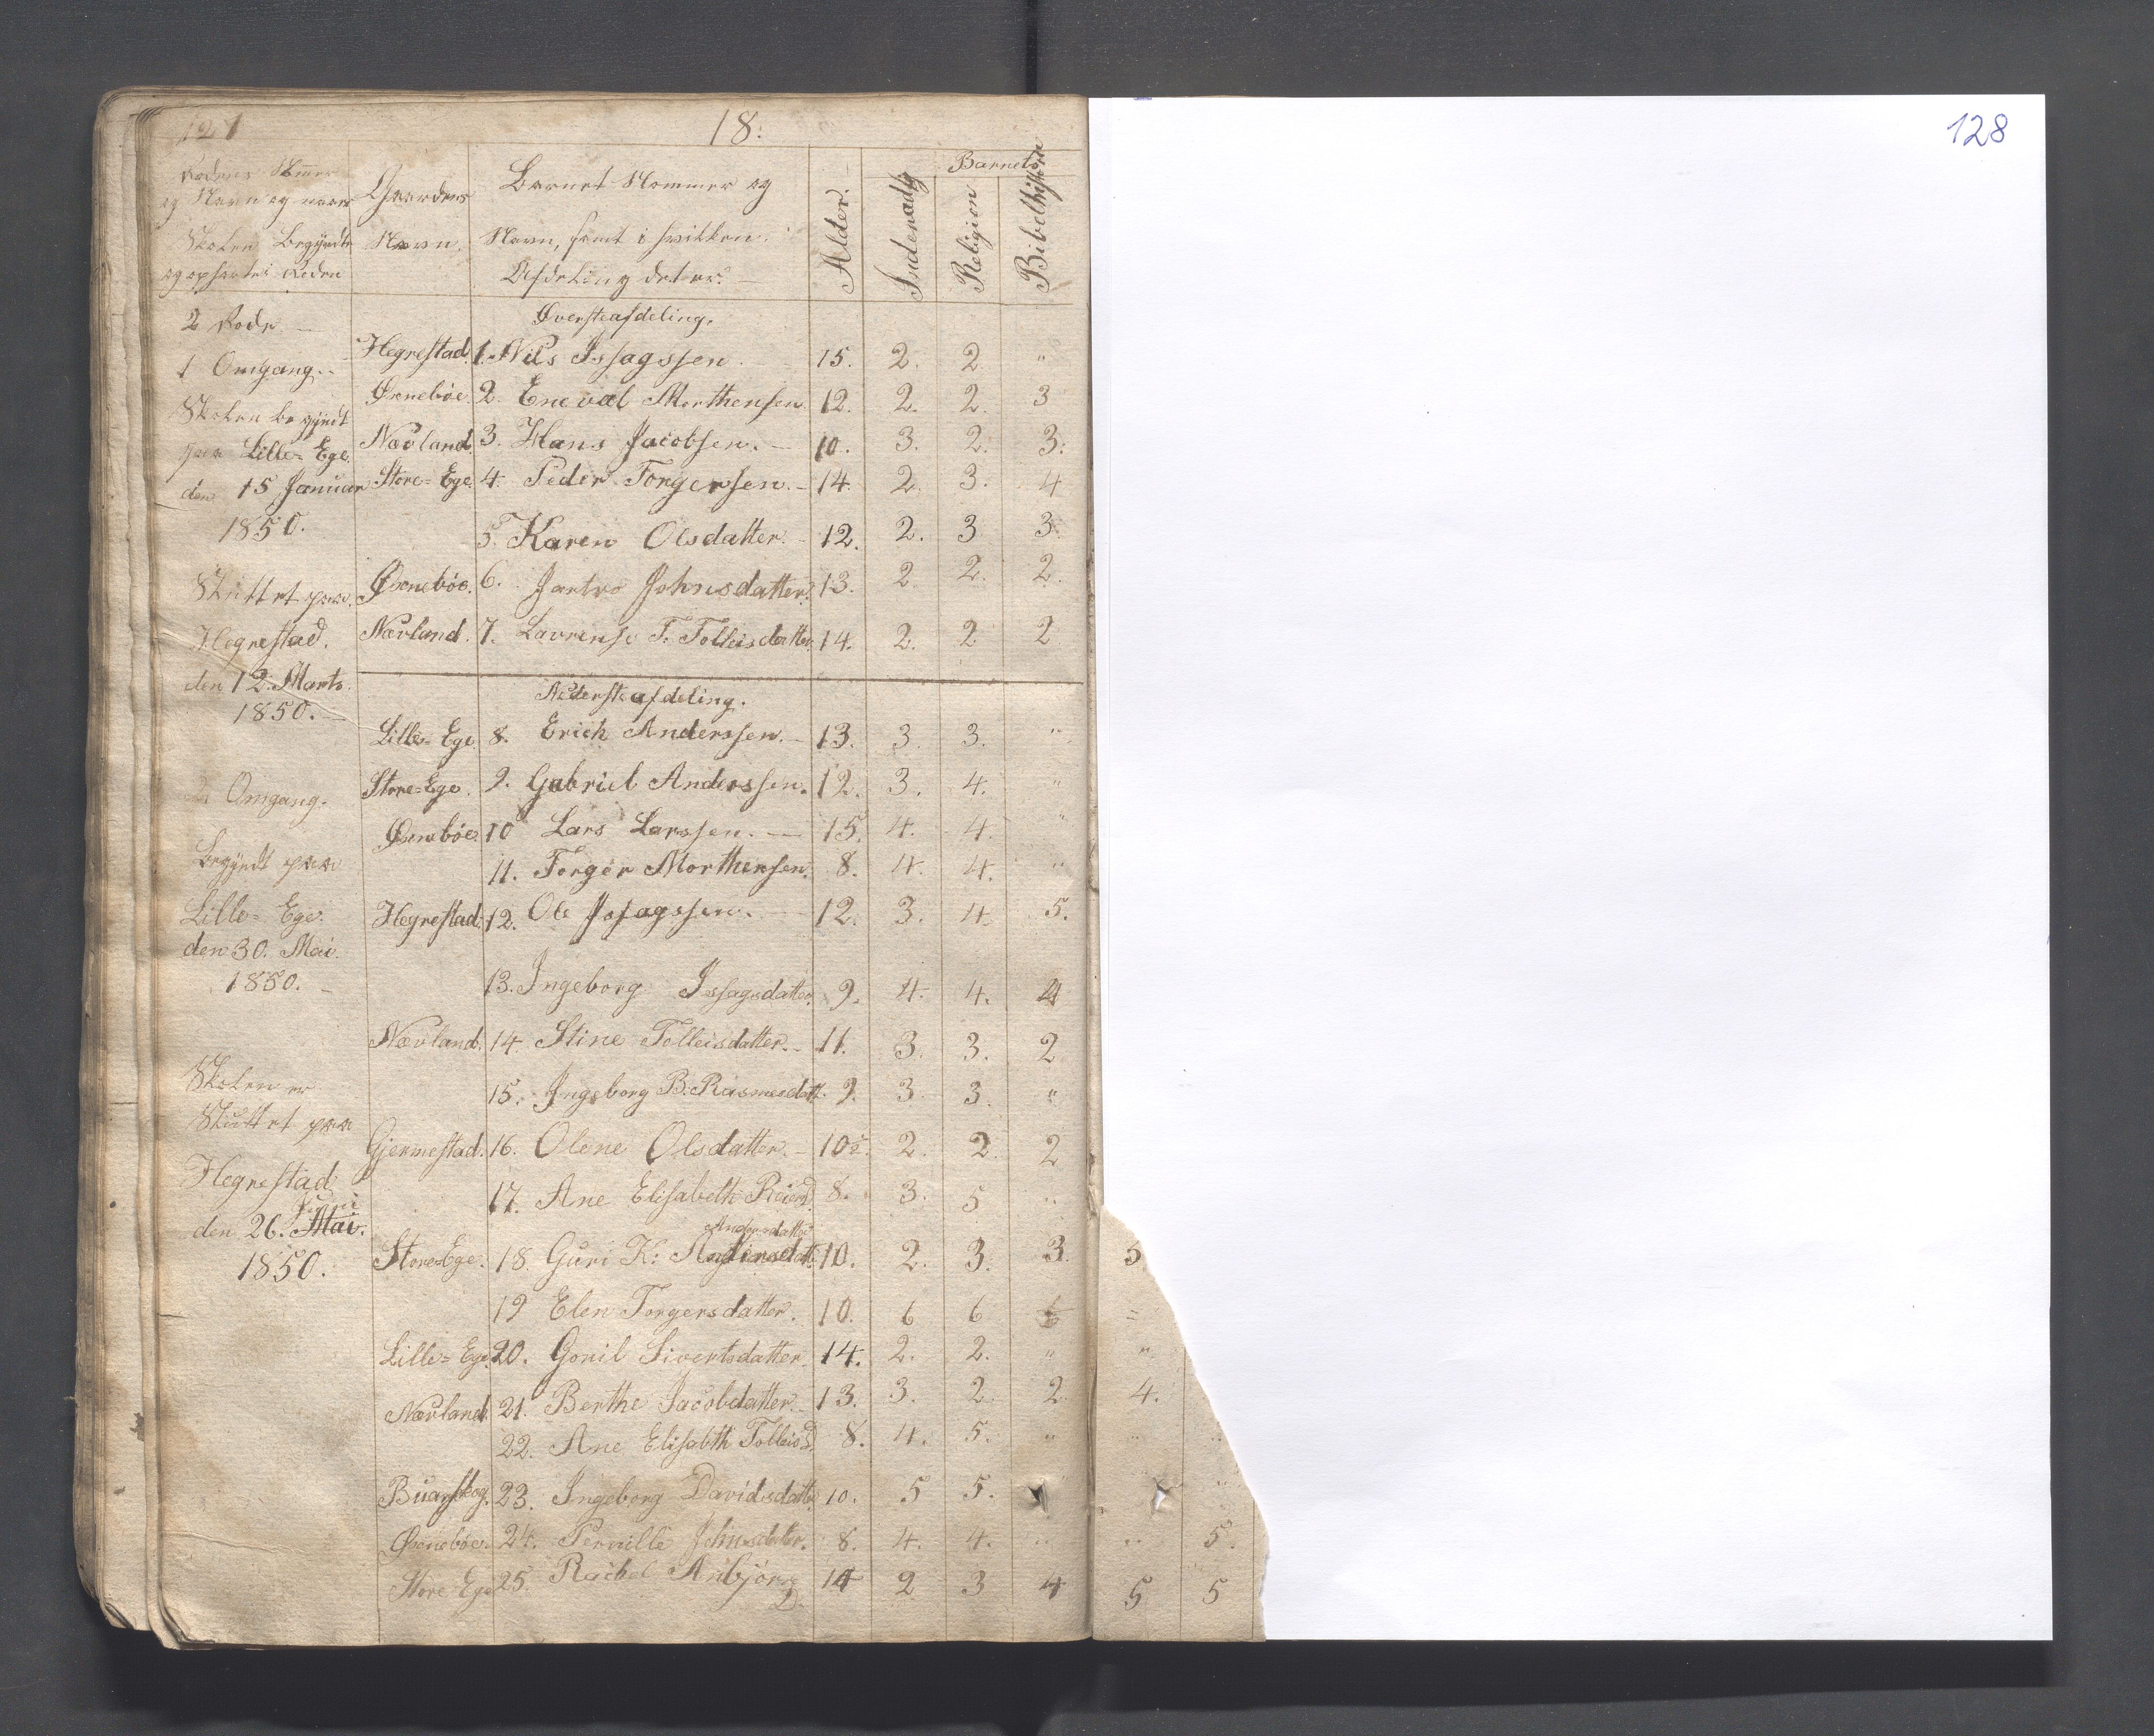 127
18.
128
Rodens Nummer
og Navn og naar
Skolen begyndte
og ophørte i Roden
Gaardens
Navn.
Barnets Nommer og
Navn, samt i hvilken
Afdeling det er.
Alder.
Barnets
Indenadl
Religion
Bibelhistorie
2 Rode
1 Omgang.
Skolen begyndt
paa Lille-Ege
den 15 Januar
1850.
Sluttet paa
Hegrestad.
den 12. Marts
1850.
2. Omgang.
Begyndt paa
Lille-Ege.
den 30. Mai.
1850.
Skolen er
Sluttet paa
Hegrestad
Juni
den 26. Mai.
1850.
Øversteafdeling.
Hegrestad. 1. Nils Issagssen 15. 2. 2. "
Ørsnebøe. 2. Eneval Morthensen. 12. 2. 2. 3
Nævland. 3. Hans Jacobsen. 10. 3. 2. 3.
Store-Ege. 4. Peder Torgersen. 14. 2. 3. 4
5. Karen Olsdatter. 12. 2. 3 3.
Øvrnebøe. 6. Johnsdatter. 13. 2 2. 2.
Nævland. 7. Lavrense T. Tolleisdatter 14. 2. 2 2
Nedersteafdeling.
Lille-Ege 8. Erich Anderssen. 13. 3. 3. "
Store-Ege. 9. Gabriel Anderssen. 12. 3. 4. "
10 Lars Larssen. 15. 4. 4. "
11. Torger Morthensen. 8. 4. 4. "
Hegrestad. 12. Ole Issagssen. 12. 3. 4. 5.
13. Ingeborg Issagsdatter. 9. 4. 4. 4
Nævland. 14. Stine Tolleisdatter. 11. 3. 3. 2
15. Ingeborg B. Rasmusdatt. 9. 3. 3. "
Gjermestad. 16. Olene Olsdatter. 10 2. 2. 2
17. Ane Elisabeth Reiersd. 8. 3. 5 "
Andersdatter
Store-Ege. 18. Guri K: 10. 2. 3. 3. 5
19 Elen Torgersdatter. 10. 6 6 6 =
Lille-Ege 20. Gonil Sivertsdatter. 14. 2. 2. " "
Nævland. 21. Berthe Jacobdatter. 13. 3. 2. 2. 4.
22. Ane Elisabth Tolleisd. 8. 4. 5. " " "
Buarskog. 23. Ingeborg Davidsdatter 10. 5 5. " "
24. Pernille Johnsdatter. 8. 4. 4. " " 5.
Store Ege 25. Rachel Asbjörns D. 14 2 3 4 5 5